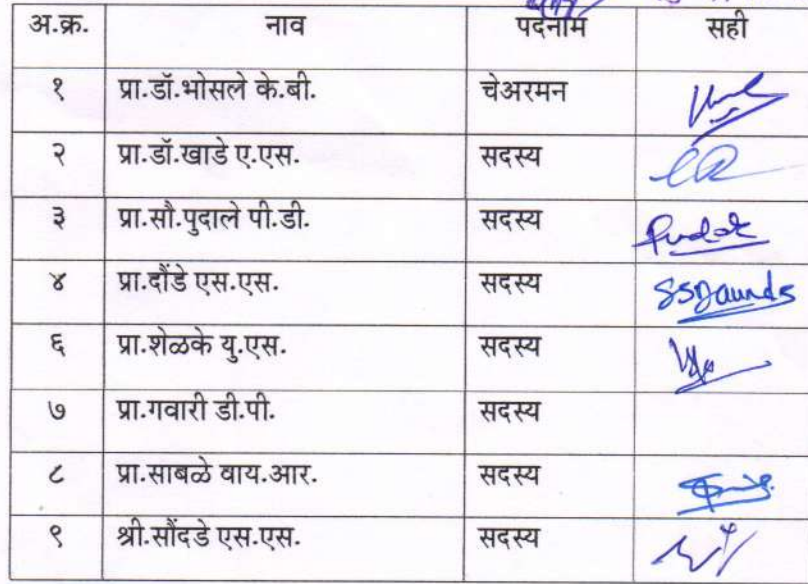 अ.क्र. नाव पदनाम सही
१ प्रा.डॉ.भोसले के.बी. चेअरमन
२ प्रा.डॉ.खाडे ए.एस. सदस्य
३ प्रा.सौ.पुदाले पी.डी. सदस्य
४ प्रा.दौंडे एस.एस. सदस्य SSDaunds
६ प्रा.शेळके यु.एस. सदस्य
७ प्रा.गवारी डी.पी. सदस्य
८ प्रा.साबळे वाय.आर. सदस्य
९ श्री.सौंदडे एस.एस. सदस्य